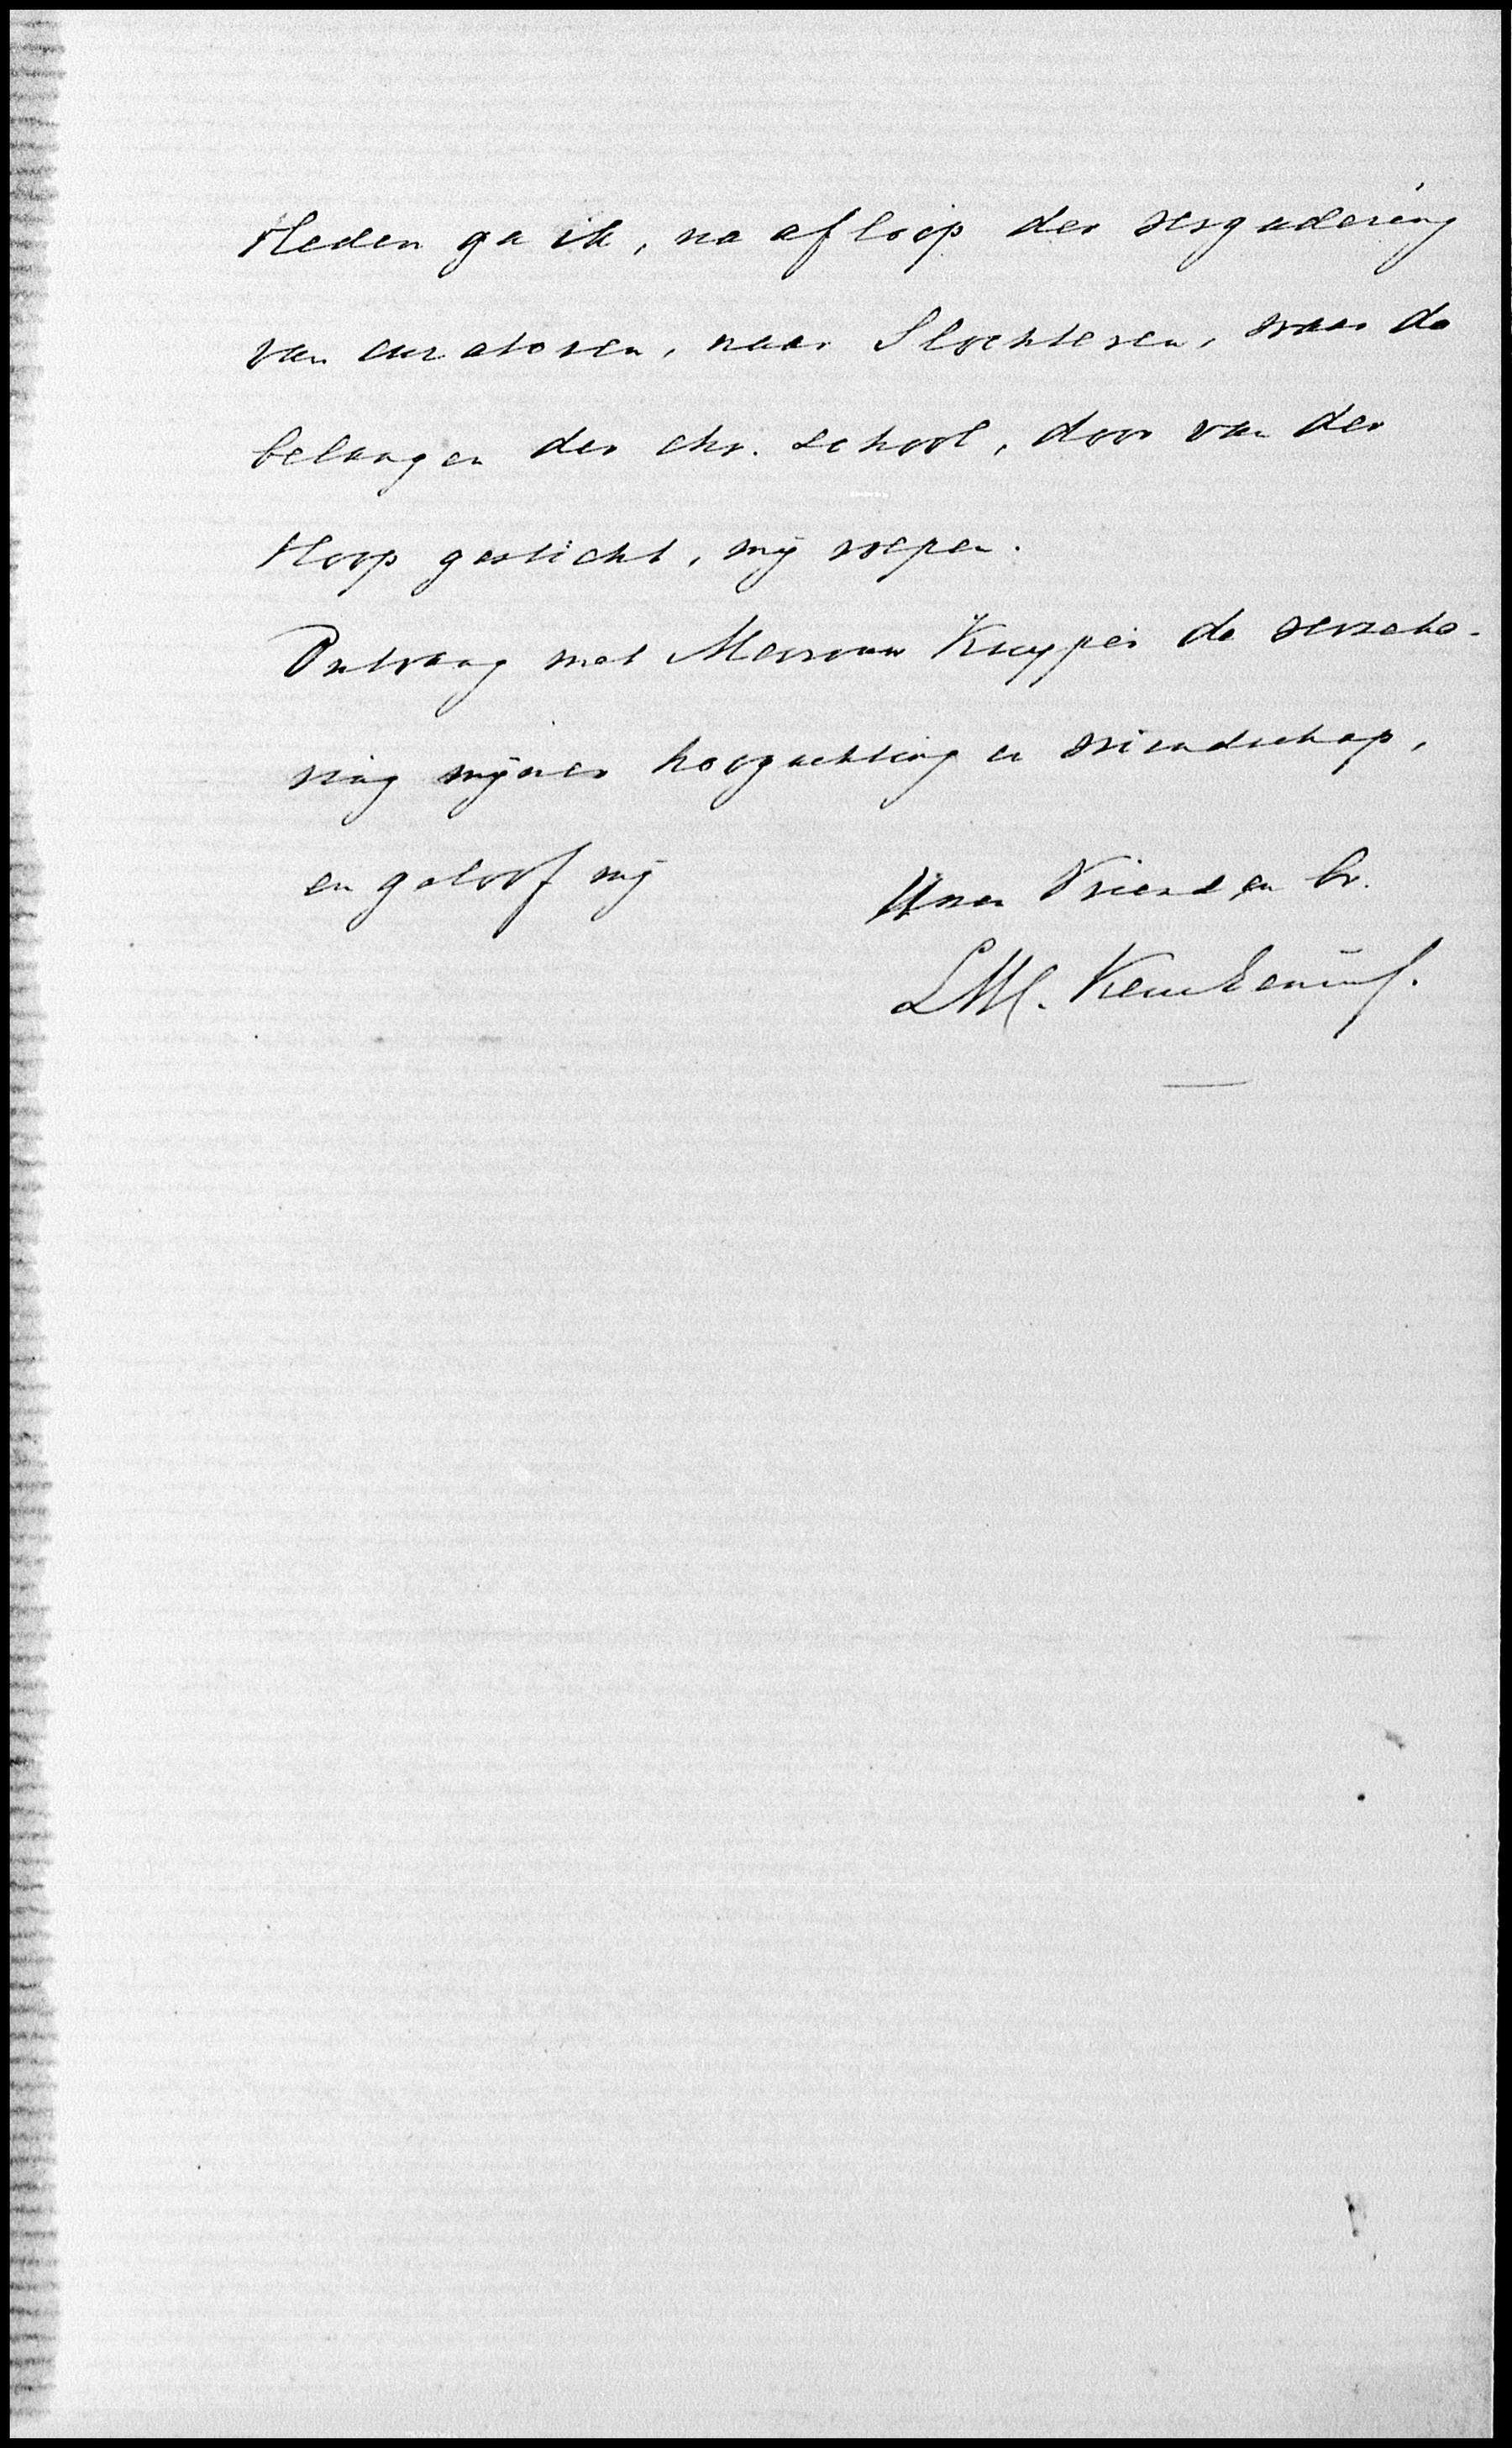 Heden ga ik, na afloop der vergadering
van curatoren, naar Slochteren, waar de
belangen der chr. school, door van der
Hoop gesticht, mij roepen.
Ontvang met Mevrouw Kuyper de verzeke-
ring mijner hoogachting en vriendschap,
en geloof mij
Uwen Vriend en br.
LW. Keuchenius.